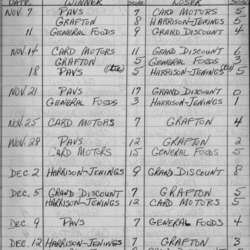 WINNER SCORE LOSER SCORE
NOV. 7 PAVS 7 CARD MOTORS
GRAFTON 8 HARRISON-JENINGS 5
11 GENERAL FOODS 9 GRAND DISCOUNT 4
NOV. 14 CARD MOTORS 11 GRAND DISCOUNT 6
GRAFTON 5 GENERAL FOODS 3
18 PAVS 5 HARRISON-JENINGS 5
NOV. 21 PAVS 17 GRAND DISCOUNT 0
GENERAL FOODS 3 HARRISON-JENINGS 1
NOV. 25 CARD MOTORS 7 GRAFTON 4
NOV. 28 PAVS 12 GRAFTON 2
CARD MOTORS 15 GENERAL FOODS 5
DEC. 2 HARRISON-JENINGS 9 GRAND DISCOUNT 8
DEC. 5 GRAND DISCOUNT 7 GRAFTON 5
HARRISON-JENINGS 12 CARD MOTORS 5
DEC. 9 PAVS 7 GENERAL FOODS 4
DEC. 12 HARRISON-JENINGS 7 GRAFTON 3